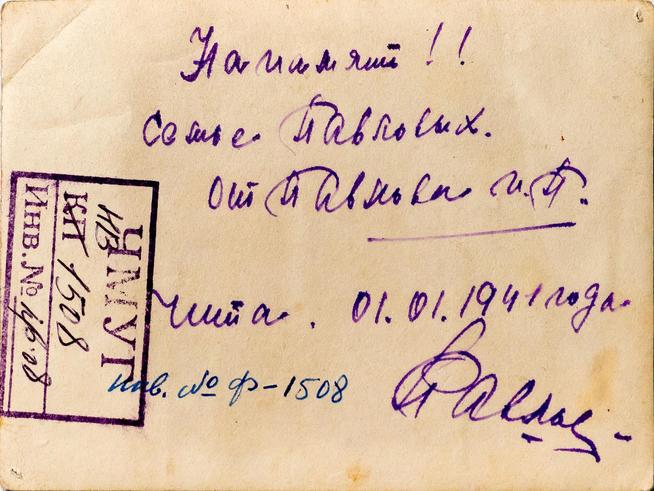 На память!!
семье Павловых.
от Павлова И.П.
Чита. 01.01.1941 года
Павлов
инв. № ф-1508
ЧМУТ
НВ
КП 1508
Инв. №